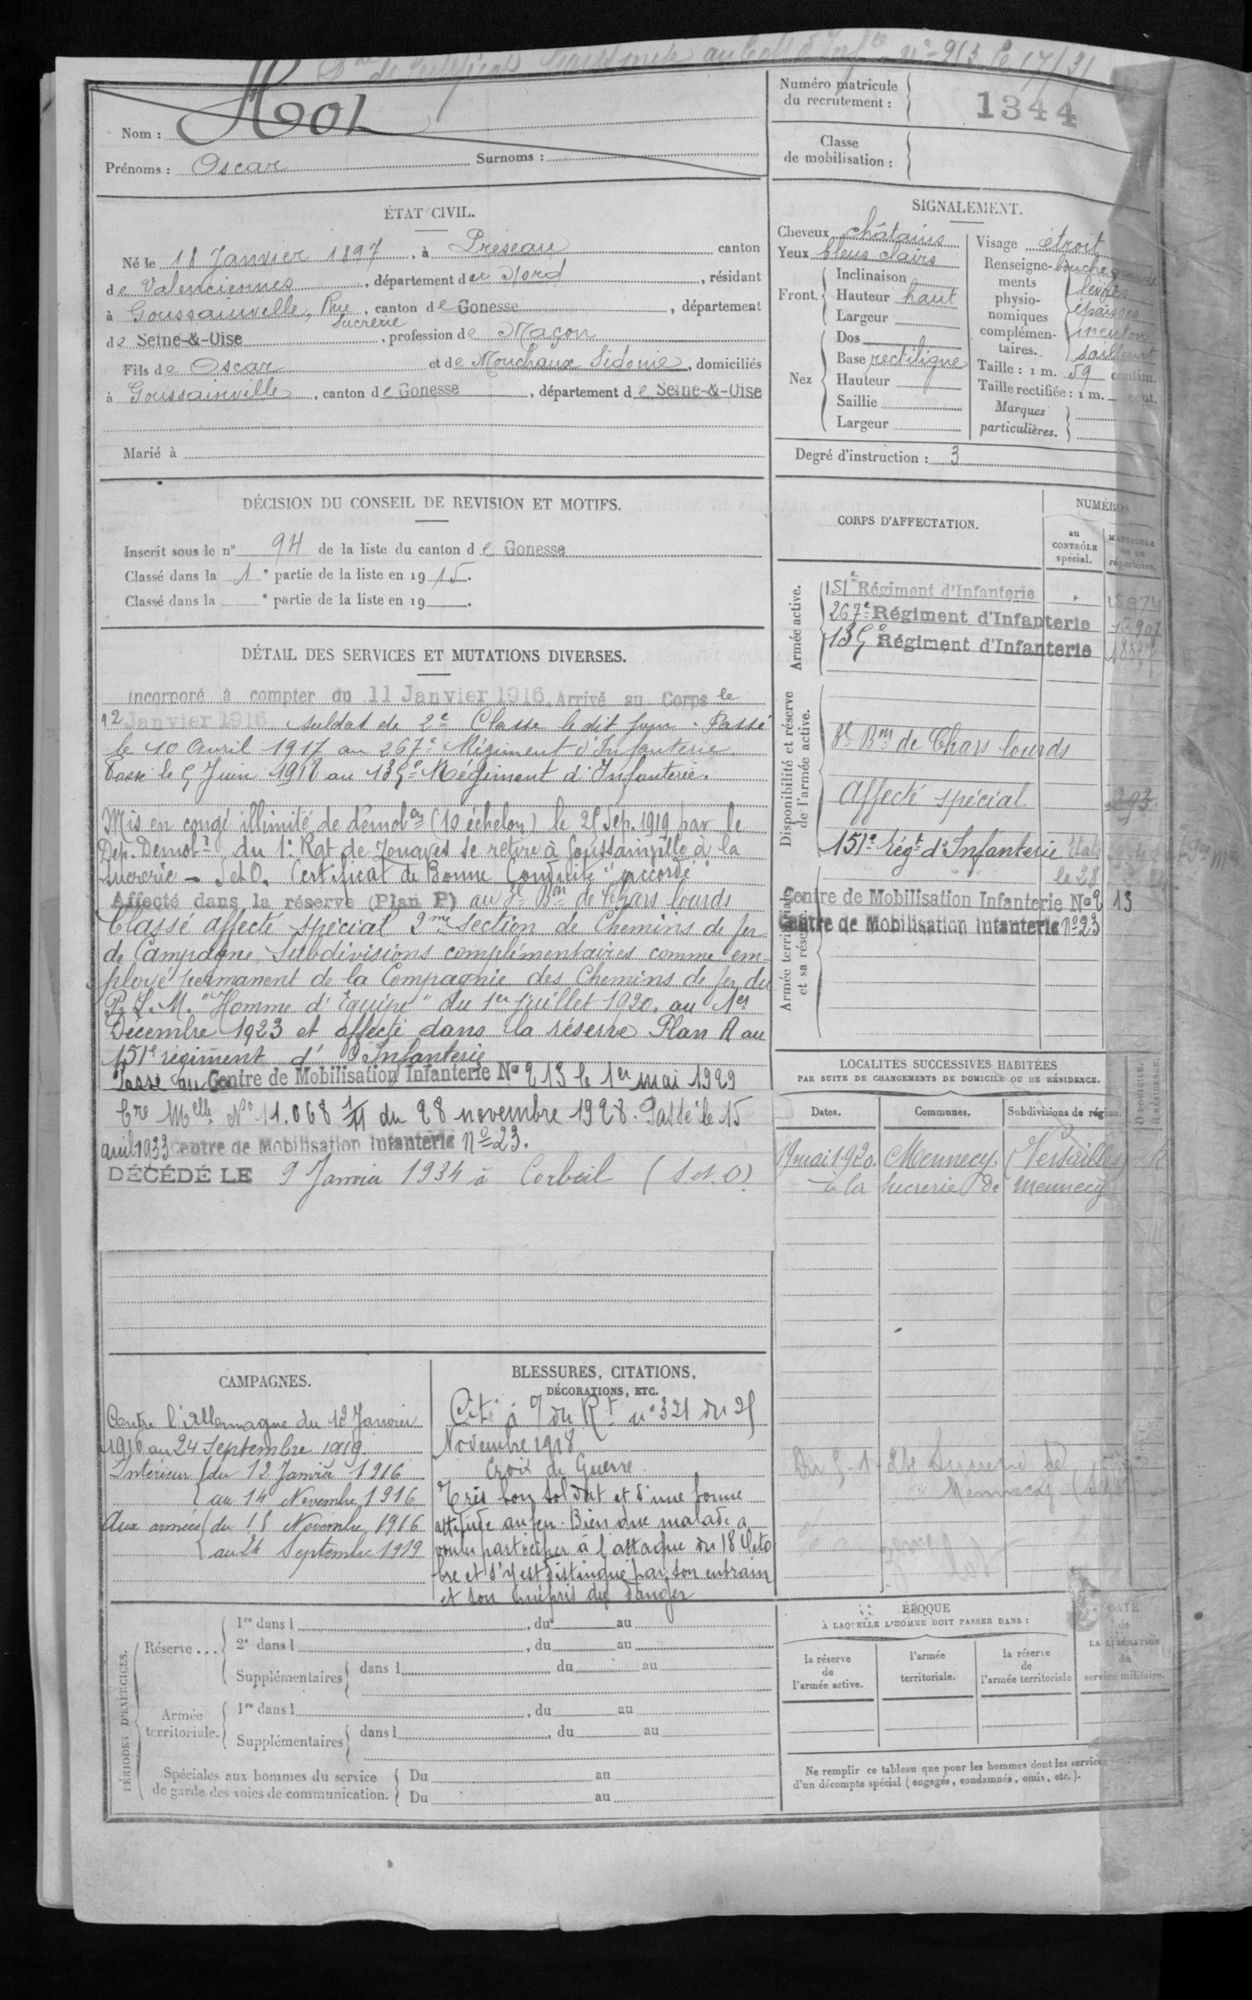 au n° 213 le 17/3/
Nom : Hot
Prénoms : Oscar Surnoms :
Numéro matricule
du recrutement : 1344
Classe
de mobilisation :
ÉTAT CIVIL.
Né le 18 Janvier 1897, à Préseau canton
de Valenciennes, département du Nord, résidant
à Goussainville, Rue Sucrerie, canton de Gonesse, département
de Seine-&-Oise, profession de Maçon
Fils de Oscar et de Mouchaux Sidonie, domiciliés
à Goussainville, canton de Gonesse, département de Seine-&-Oise
Marié à
SIGNALEMENT.
Cheveux châtains
Yeux bleus clairs
Front. Inclinaison
Hauteur haut
Largeur
Nez Dos
Base rectiligne
Hauteur
Saillie
Largeur
Visage étroit
Renseignements physionomiques complémentaires. bouche grande
lèvres
épaisses
menton
saillant
Taille : 1 m. 59 centim.
Taille rectifiée : 1 m. cent.
Marques
particulières.
Degré d'instruction : 3
DÉCISION DU CONSEIL DE REVISION ET MOTIFS.
Inscrit sous le n° 94 de la liste du canton de Gonesse
Classé dans la 1e partie de la liste en 1915.
Classé dans la e partie de la liste en 19 .
CORPS D'AFFECTATION.
NUMÉROS
au
CONTRÔLE
spécial.
MATRICULE
ou au
répertoire.
Armée active.
151e Régiment d'Infanterie 15974
267e Régiment d'Infanterie
135e Régiment d'Infanterie
Disponibilité et réserve
de l'armée active.
3e Bon de Chars lourds
Affecté spécial 293
151e Régt d'Infanterie
le 28
Armée territoriale
et sa réserve.
Centre de Mobilisation Infanterie No 213
Centre de Mobilisation Infanterie No 23
DÉTAIL DES SERVICES ET MUTATIONS DIVERSES.
Incorporé à compter du 11 Janvier 1916. Arrivé au Corps le
12 Janvier 1916 soldat de 2e Classe le dit jour. Passé
le 10 Avril 1917 au 267e Régiment d'Infanterie
Passé le 5 Juin 1918 au 135e Régiment d'Infanterie.
Mis en congé illimité de démobon (10 échelon) le 25 Sep. 1919 par le
Dép. Démobr du 1er Rgt de Zouaves se retire à Goussainville à la
Sucrerie - S et O. Certificat de Bonne Conduite "accordé"
Affecté dans la réserve (Plan P) au 3e Bon de Chars lourds
Classé affecté spécial 2me section de Chemins de fer
de Campagne, Subdivisions complémentaires comme em-
ployé permanent de la Compagnie des Chemins de fer du
P. L. M. "Homme d'Equipe" du 1er juillet 1920. au 1er
Décembre 1923 et affecté dans la réserve Plan A au
151e régiment d'Infanterie
Passé au Centre de Mobilisation Infanterie No 213 le 1er mai 1929
Cre Melle No 11.068 1/11 du 28 novembre 1928. Passé le 15
avril 1933 Centre de Mobilisation Infanterie No 23.
DÉCÉDÉ LE 9 Janvier 1934 à Corbeil (S et O)
LOCALITÉS SUCCESSIVES HABITÉES
PAR SUITE DE CHANGEMENTS DE DOMICILE OU DE RÉSIDENCE.
Dates. Communes. Subdivisions de région. D DOMICILE. R RÉSIDENCE.
19 mai 1920. Mennecy. (Versailles) R
à la Sucrerie de Mennecy
Sucrerie de
Mennecy
CAMPAGNES.
Contre l'Allemagne du 12 Janvier
1916 au 24 Septembre 1919.
Intérieur du 12 Janvier 1916
au 14 Novembre 1916
Aux armées du 15 Novembre 1916
au 24 Septembre 1919
BLESSURES, CITATIONS,
DÉCORATIONS, ETC.
Cité à l'O/ du Rt n° 321 du 25
Novembre 1918
Croix de Guerre
Très bon soldat et d'une bonne
attitude au feu. Bien que malade a
voulu participer à l'attaque du 18 Octo
bre et s'y est distingué par son entrain
et son mépris du danger
PÉRIODES D'EXERCICES.
Réserve... 1re dans l , du au
2e dans l , du au
Supplémentaires dans l du au
Armée
territoriale. 1re dans l , du au
Supplémentaires dans l , du au
Spéciales aux hommes du service
de garde des voies de communication. Du au
Du au
ÉPOQUE
À LAQUELLE L'HOMME DOIT PASSER DANS :
la réserve
de
l'armée active.
l'armée
territoriale.
la réserve
de
l'armée territoriale
DATE
de
LA LIBÉRATION
du
service militaire.
Ne remplir ce tableau que pour les hommes dont les services
d'un décompte spécial (engagés, condamnés, omis, etc.).